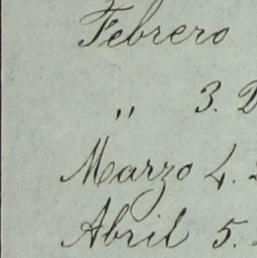 Febrero
" 3.
Marzo 4.
Abril 5.